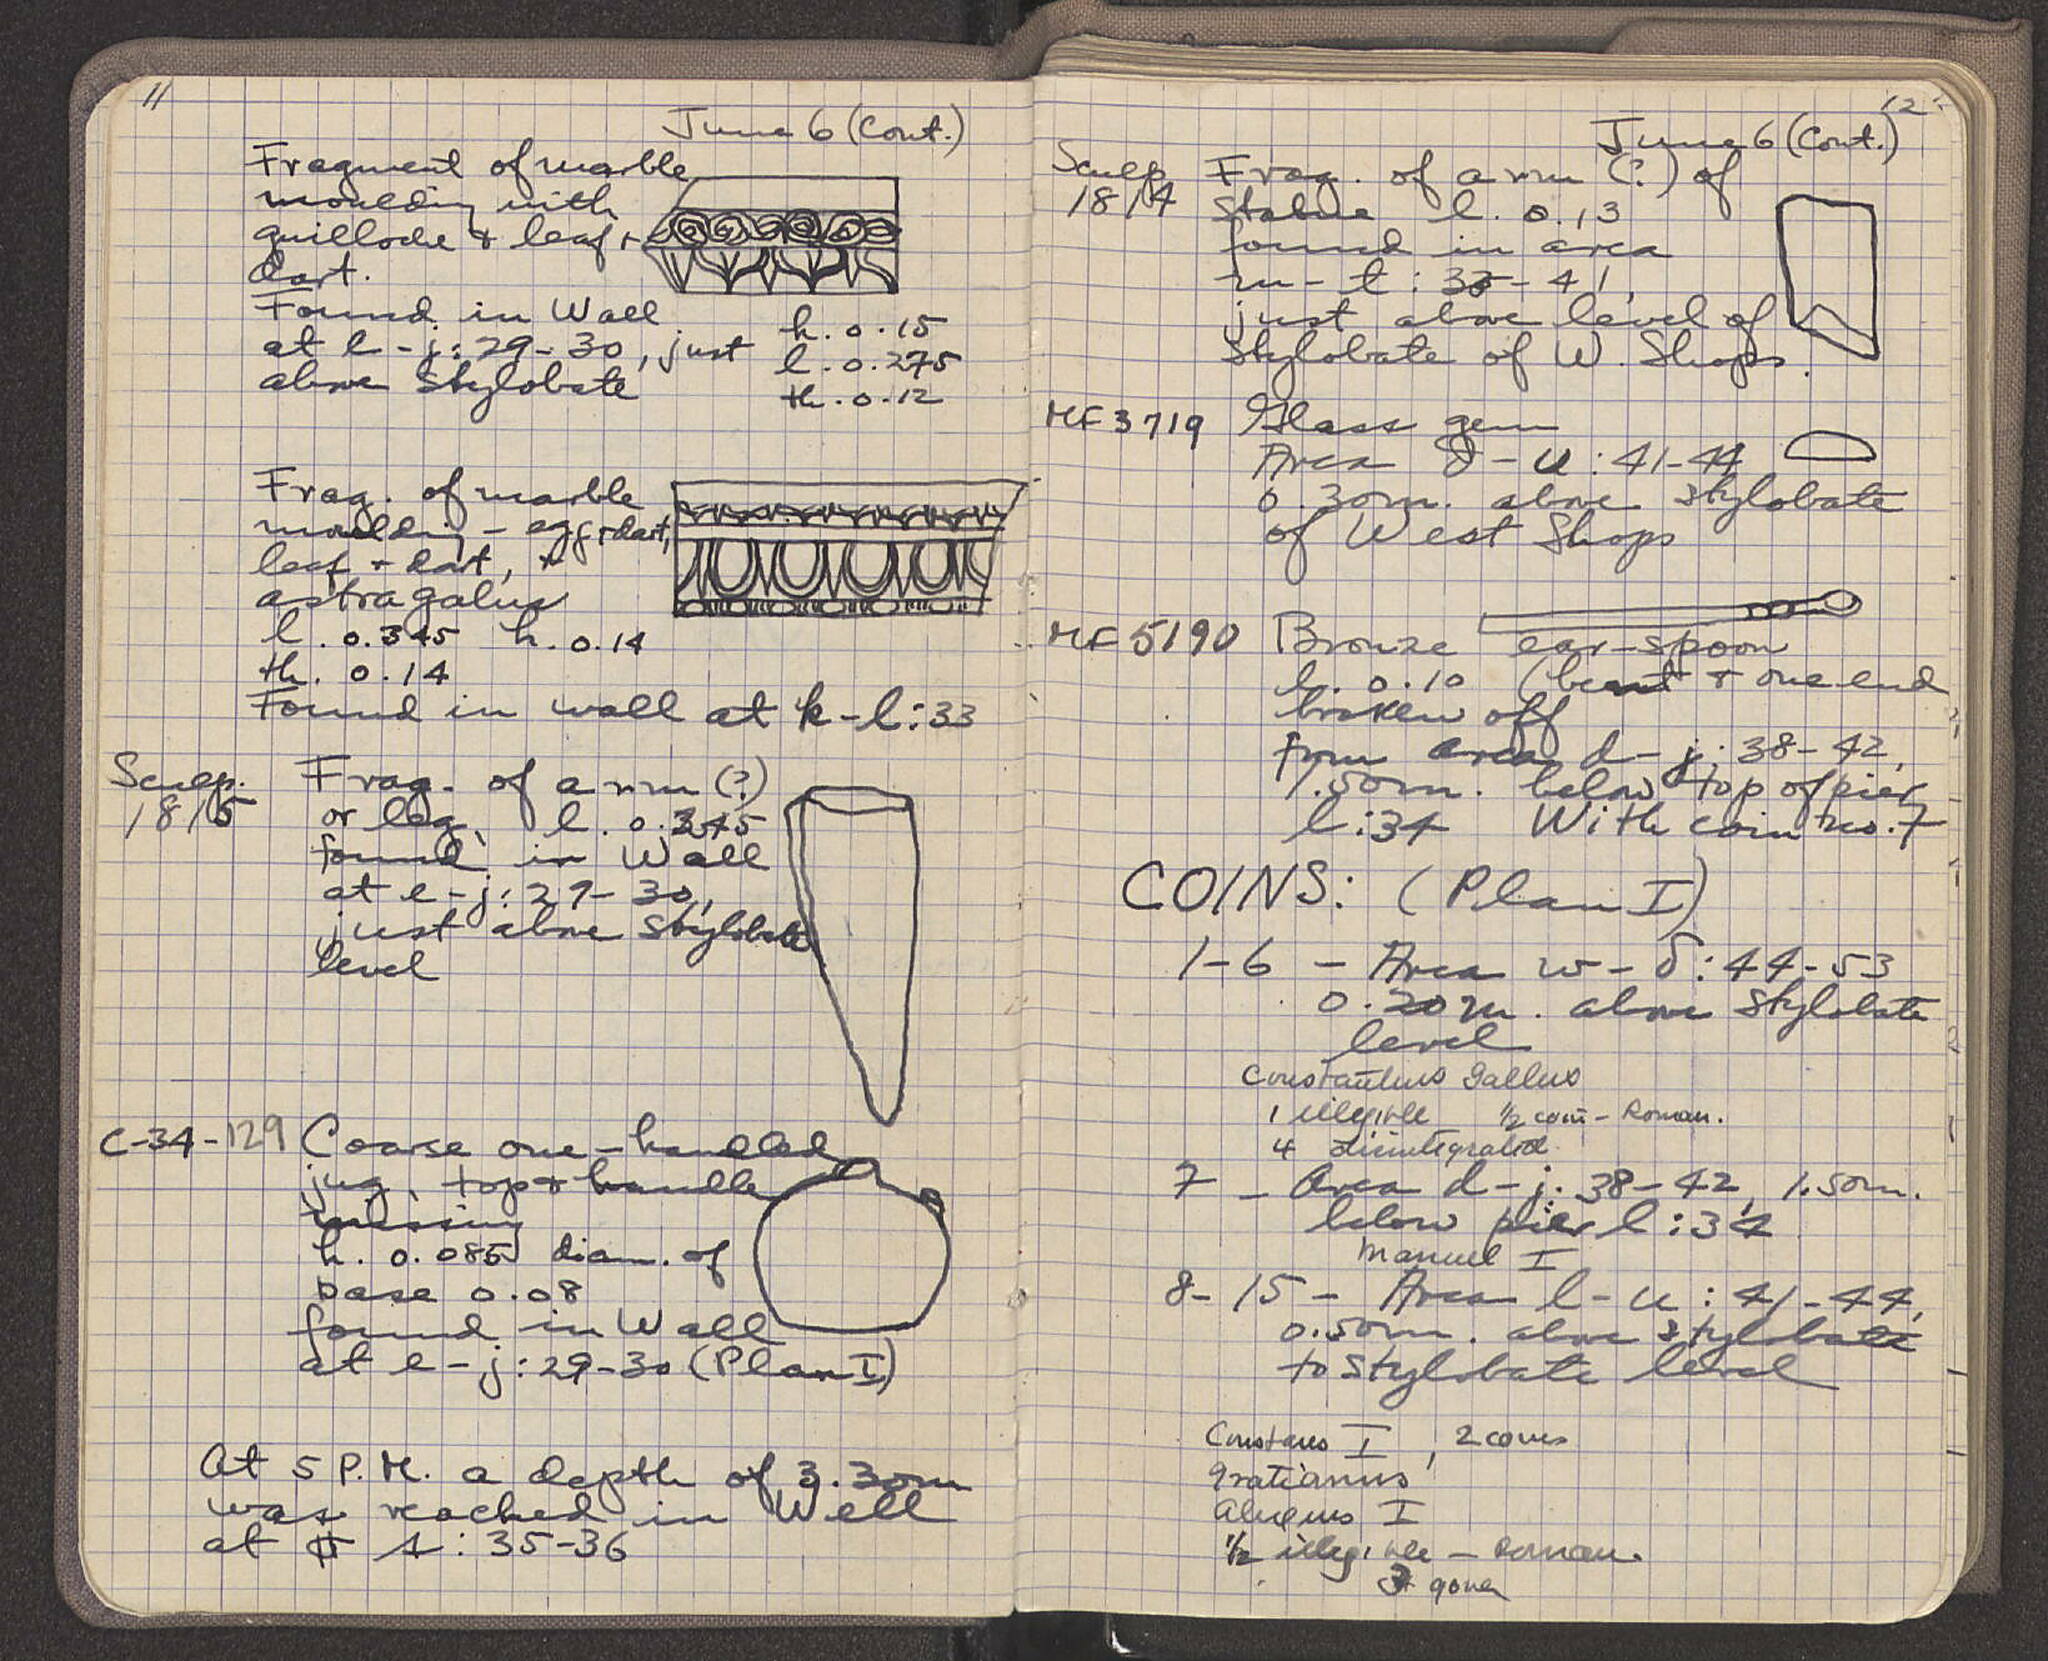 11
June 6 (Cont.)
Fragment of marble
moulding with
guilloche + leaf +
dart.
Found in Wall
at e-j:29-30, just
above Stylobate
h. 0.15
l. 0.275
th. 0.12
Frag. of marble
moulding - egg + dart,
leaf + dart, +
astragalus
l. 0.345 h. 0.14
th. 0.14
Found in wall at k-l:33
Sculp.
1815
Frag. of arm (?)
or leg, l. 0.245
found in Wall
at e-j:29-30,
just above Stylobate
level
C-34-129
Coarse one-handled
jug, top + handle
missing
h. 0.085 diam. of
base 0.08
found in Wall
at e-j:29-30 (Plan I)
At 5 P.M. a depth of 3.30m
was reached in Well
at s:35-36
12
June 6 (Cont.)
Sculp
1814
Frag. of arm (?) of
statue l. 0.13
found in area
m-t:35-41,
just above level of
Stylobate of W. Shops.
MF 3719
Glass gem
Area -u:41-44
0.30m. above stylobate
of West Shops
MF 5190
Bronze ear-spoon
l. 0.10 (bent + one end
broken off
from area d-j:38-42,
1.50m. below top of pier
l:34 With coin no. 7
COINS: (Plan I)
1-6 - Area w-δ:44-53
0.20m. above Stylobate
level
Constantius Gallus
1 illegible ½ coin - Roman.
4 disintegrated
7 - Area d-j:38-42, 1.50m.
below pier l:34
Manuel I
8-15 - Area l-u:41-44,
0.50m. above stylobate
to stylobate level
Constans I, 2 coins
Gratianus
Alexius I
½ illegible - Roman.
3 gone